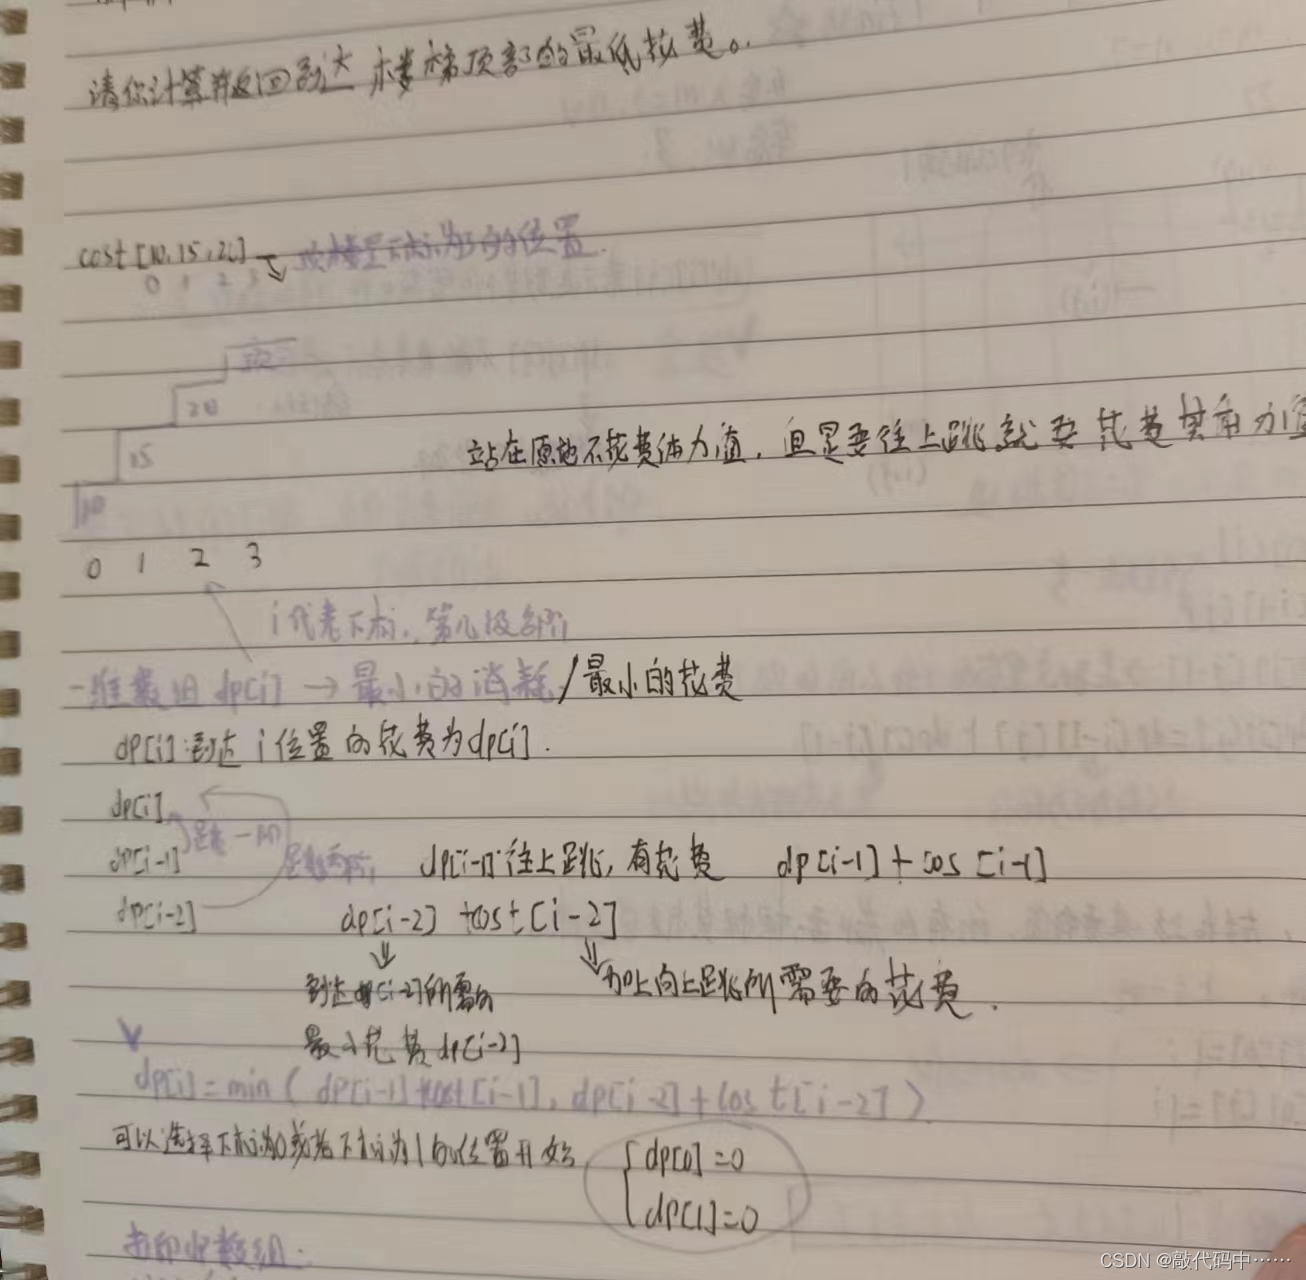 请你计算并返回到达楼梯顶部的最低花费。
cost[10,15,20] → 顶楼是下标为3的位置.
0 1 2 3
顶
20
15
10
站在原地不花费体力值,但是要往上跳就要花费体力值
0 1 2 3
i代表下标,第几级台阶
一维数组 dp[i] → 最小的消耗/最小的花费
dp[i]:到达i位置的花费为dp[i].
dp[i]
跳一阶
dp[i-1] 跳两阶 dp[i-1]往上跳,有花费 dp[i-1]+cos[i-1]
dp[i-2] dp[i-2] +cost[i-2]
到达dp[i-2]所需的 加上向上跳所需要的花费.
最小花费dp[i-2]
dp[i]=min(dp[i-1]+cost[i-1],dp[i-2]+cost[i-2])
可以选择下标为0或者下标为1的位置开始 dp[0]=0
dp[1]=0
打印数组.
CSDN @敲代码中……